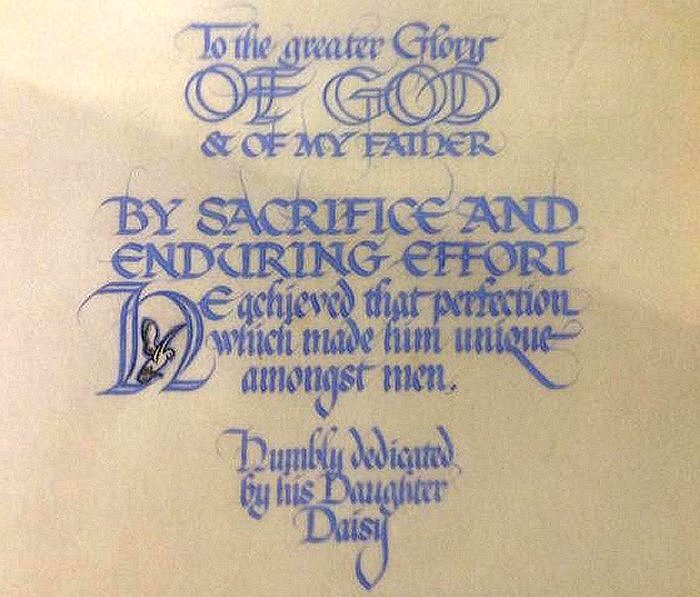 To the greater Glory
OF GOD
& OF MY FATHER
BY SACRIFICE AND
ENDURING EFFORT
HE achieved that perfection
which made him unique
amongst men.
Humbly dedicated
by his Daughter
Daisy